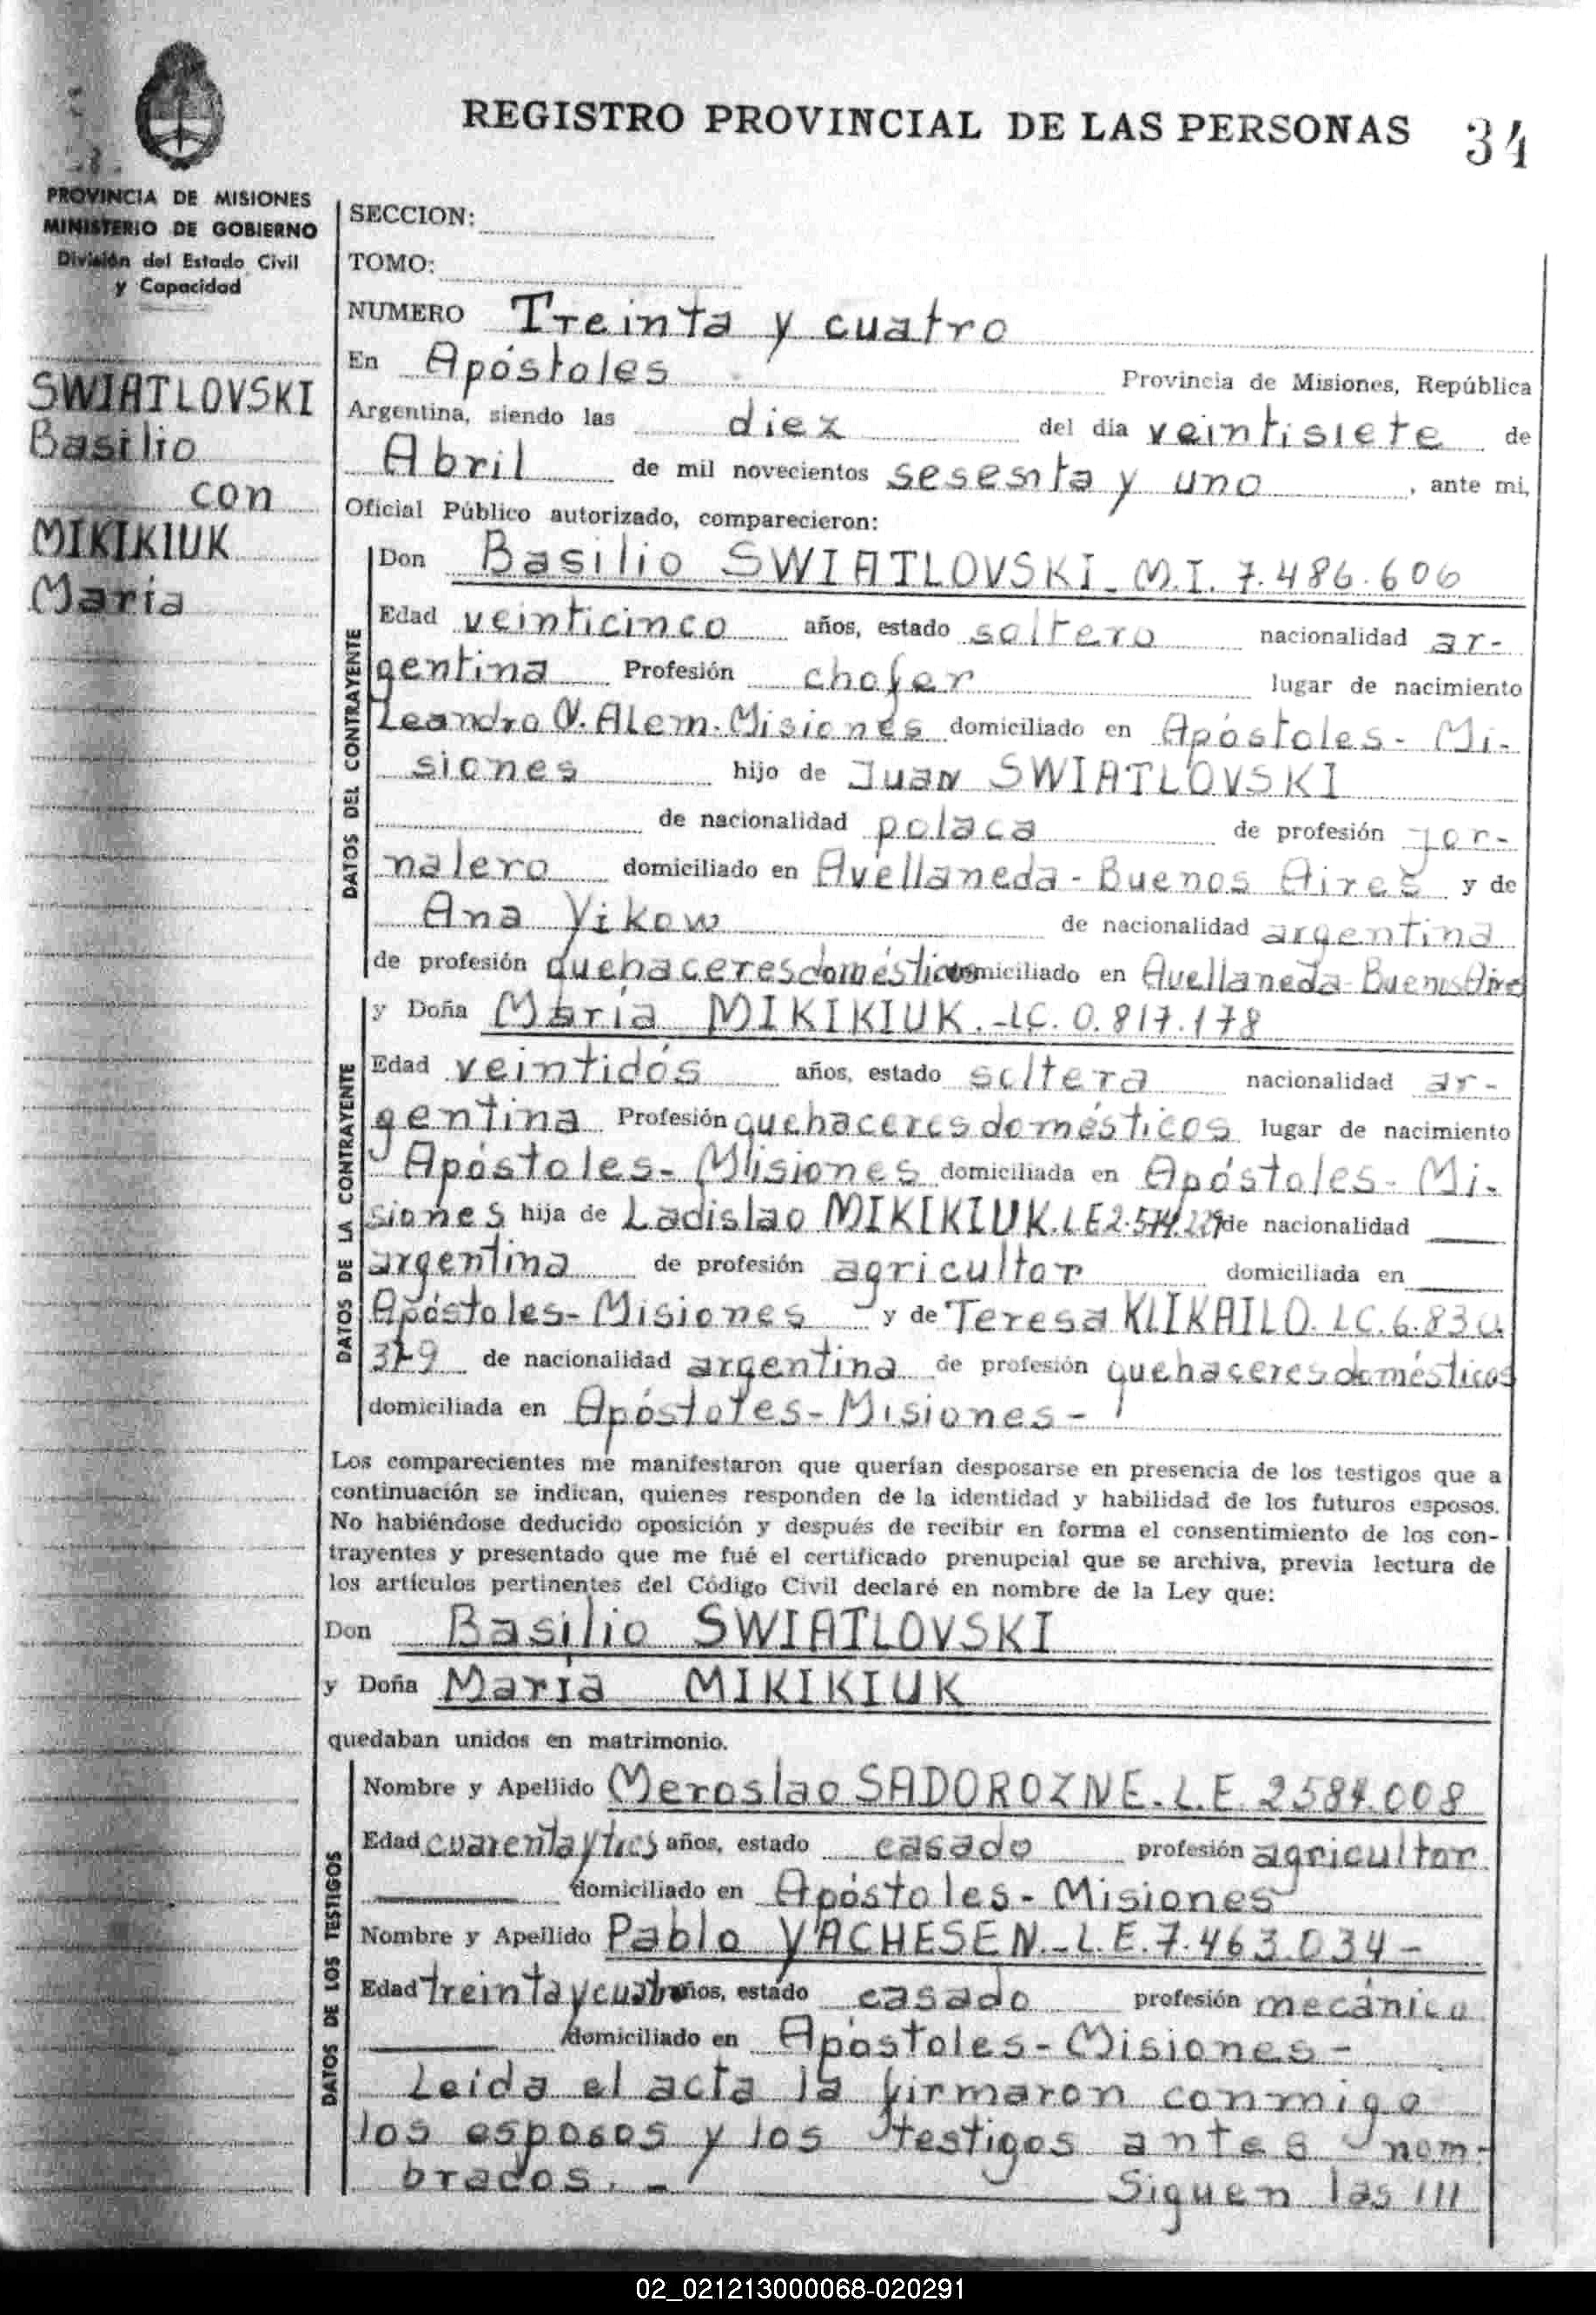 REGISTRO PROVINCIAL DE LAS PERSONAS 34
PROVINCIA DE MISIONES
MINISTERIO DE GOBIERNO
División del Estado Civil
y Capacidad
SWIATLOVSKI
Basilio
con
MIKIKIUK
María
SECCION:
TOMO:
NUMERO Treinta y cuatro
En Apóstoles Provincia de Misiones, República
Argentina, siendo las diez del día veintisiete de
Abril de mil novecientos sesenta y uno, ante mi,
Oficial Público autorizado, comparecieron:
DATOS DEL CONTRAYENTE
Don Basilio SWIATLOVSKI_ M.I. 7.486.606
Edad veinticinco años, estado soltero nacionalidad ar-
gentina Profesión chofer lugar de nacimiento
Leandro N. Alem. Misiones domiciliado en Apóstoles- Mi-
siones hijo de Juan SWIATLOVSKI
de nacionalidad polaca de profesión jor-
nalero domiciliado en Avellaneda- Buenos Aires y de
Ana Yikow de nacionalidad argentina
de profesión quehaceres domésticos domiciliado en Avellaneda-Buenos Aires
DATOS DE LA CONTRAYENTE
y Doña María MIKIKIUK.-LC. 0.817.178
Edad veintidós años, estado soltera nacionalidad ar-
gentina Profesión quehaceres domésticos lugar de nacimiento
Apóstoles- Misiones domiciliada en Apóstoles- Mi-
siones hija de Ladislao MIKIKIUK. LE 2.574.229 de nacionalidad
argentina de profesión agricultor domiciliada en
Apóstoles- Misiones y de Teresa KLIKAILO. LC. 6.830.
379 de nacionalidad argentina de profesión quehaceres domésticos
domiciliada en Apóstoles- Misiones-
Los comparecientes me manifestaron que querían desposarse en presencia de los testigos que a
continuación se indican, quienes responden de la identidad y habilidad de los futuros esposos.
No habiéndose deducido oposición y después de recibir en forma el consentimiento de los con-
trayentes y presentado que me fué el certificado prenupcial que se archiva, previa lectura de
los artículos pertinentes del Código Civil declaré en nombre de la Ley que:
Don Basilio SWIATLOVSKI
y Doña María MIKIKIUK
quedaban unidos en matrimonio.
DATOS DE LOS TESTIGOS
Nombre y Apellido Meroslao SADOROZNE. L.E. 2584.008
Edad cuarenta y tres años, estado casado profesión agricultor
domiciliado en Apóstoles- Misiones
Nombre y Apellido Pablo YACHESEN.-L.E. 7.463.034-
Edad treinta y cuatro años, estado casado profesión mecánico
domiciliado en Apóstoles- Misiones-
Leída el acta la firmaron conmigo
los esposos y los testigos antes nom-
brados.- Siguen las ///
02_021213000068-020291